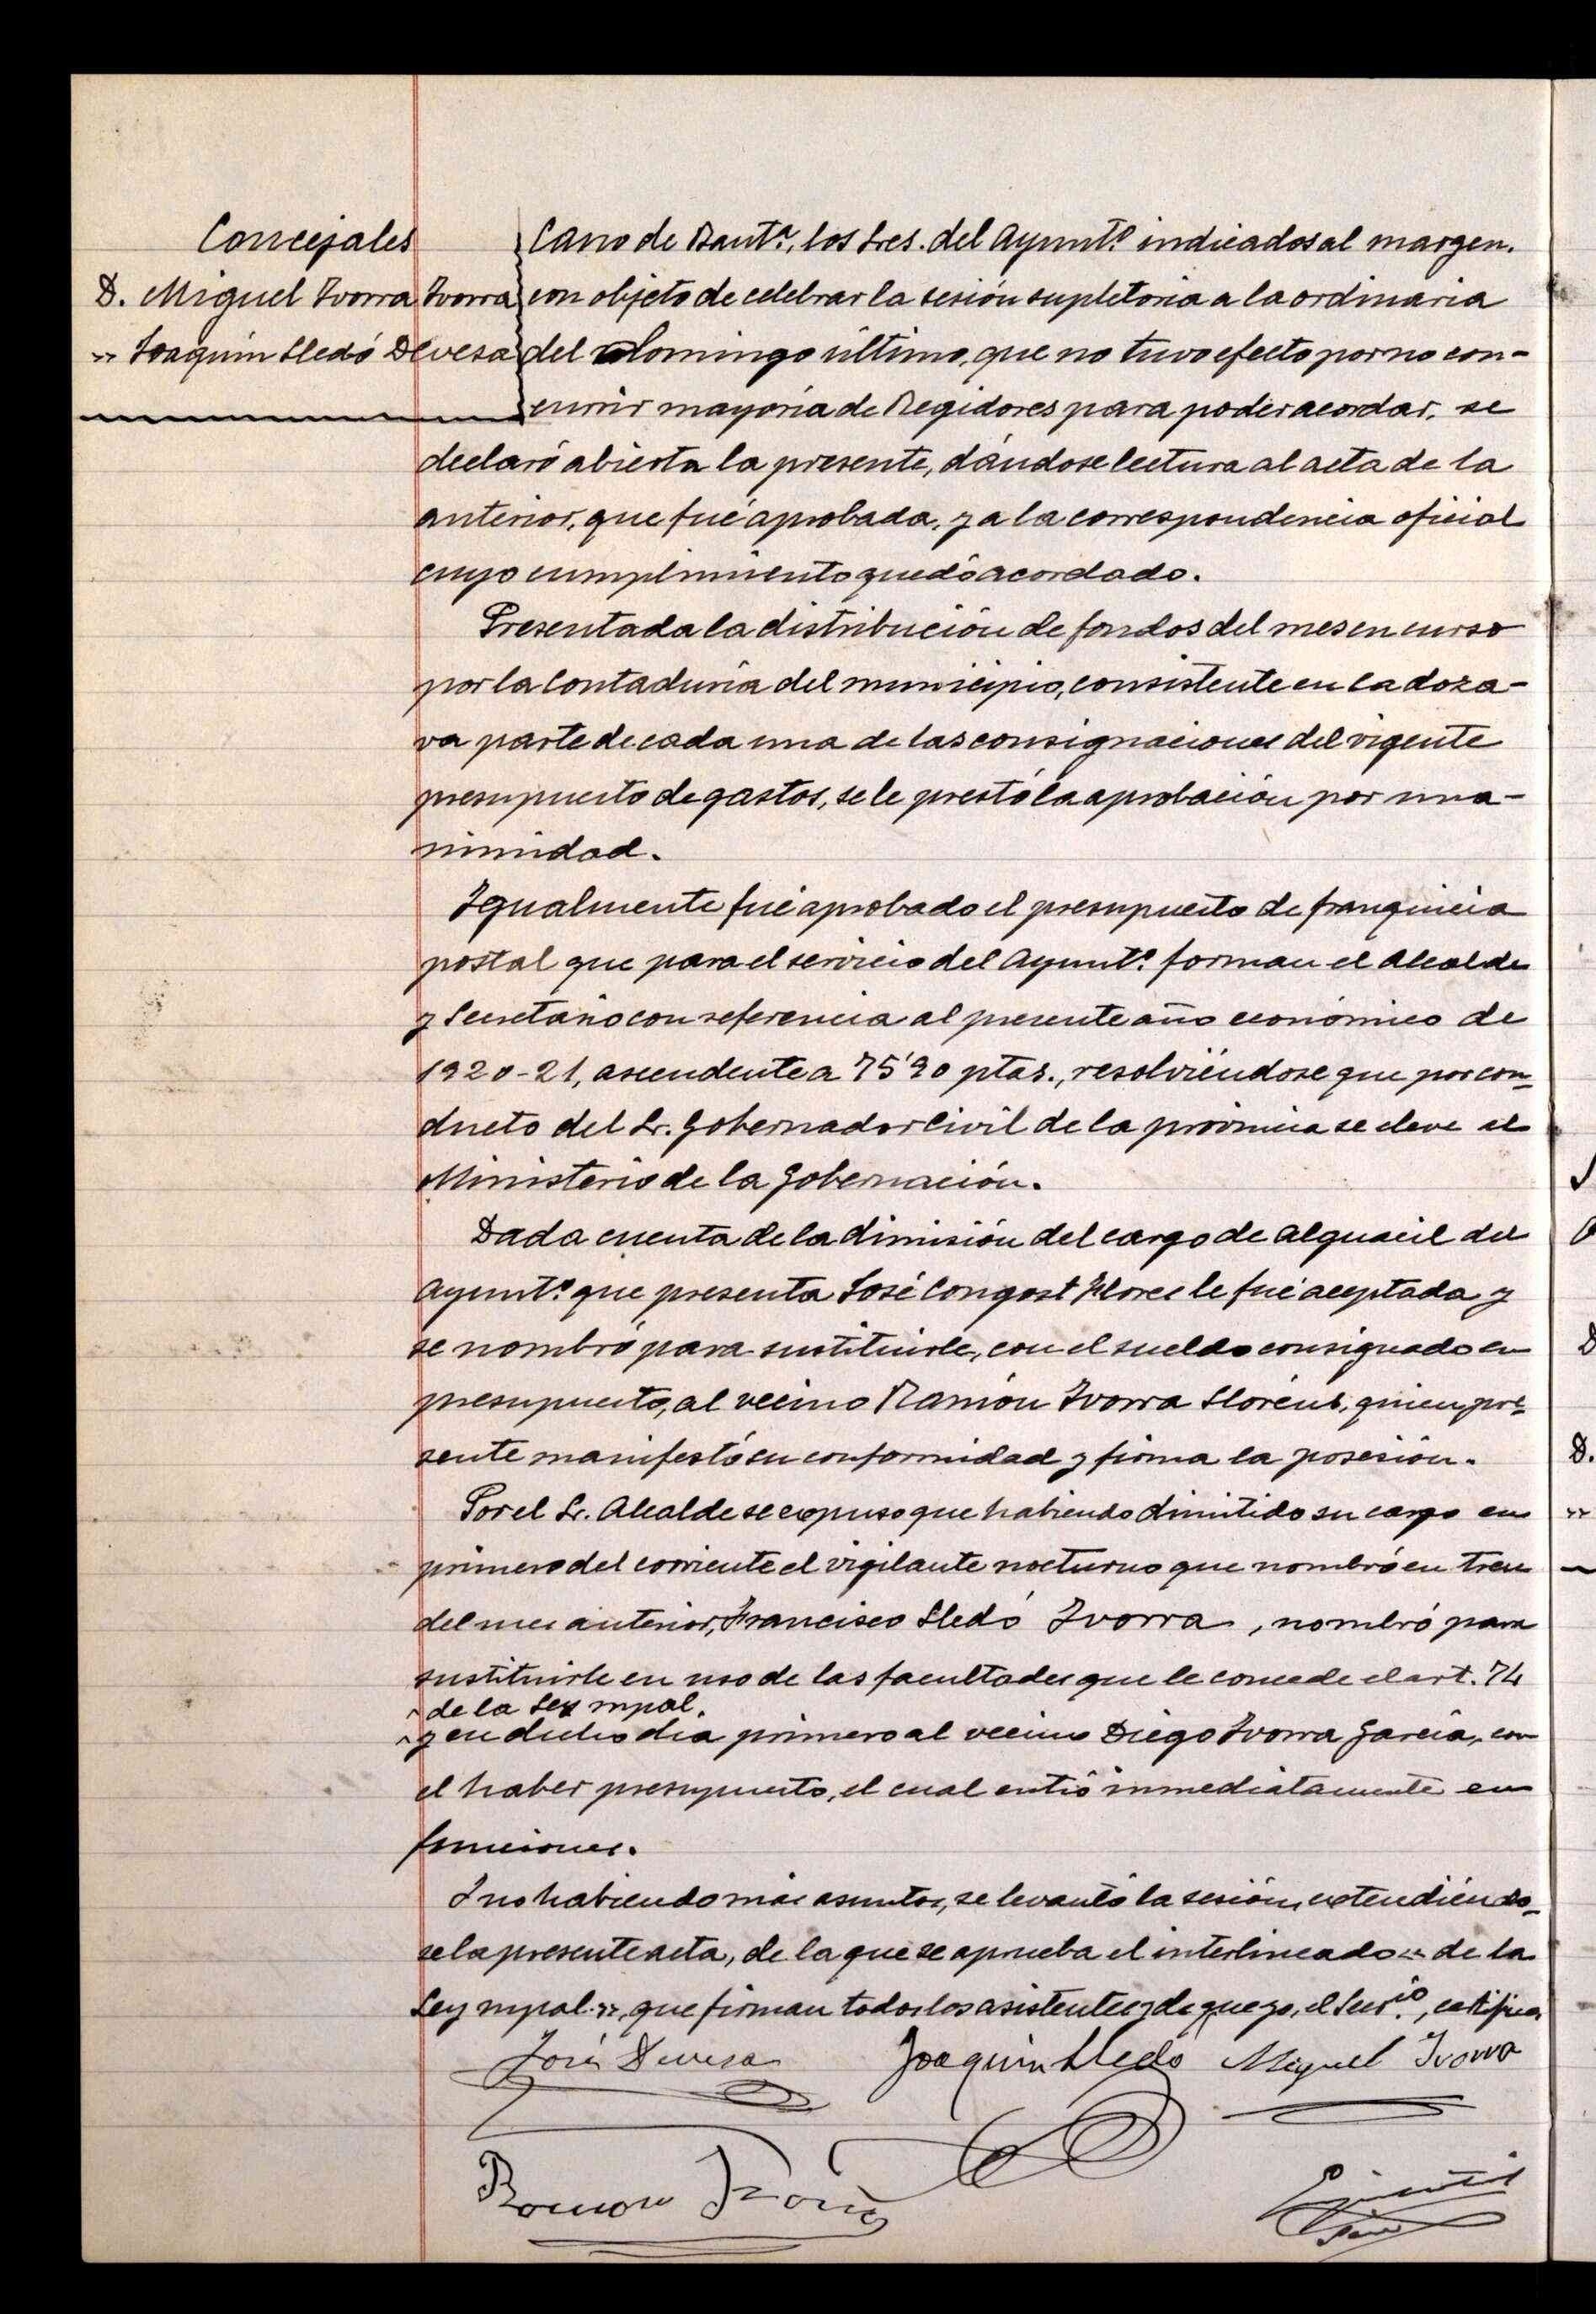 Concejales
D. Miguel Ivorra Ivorra
" Joaquín Lledó Devesa
Cano de Santª, los Sres. del Ayuntº indicados al margen,
con objeto de celebrar la sesión supletoria a la ordinaria
del domingo último, que no tuvo efecto por no con-
currir mayoría de Regidores para poder acordar, se
declaró abierta la presente, dándose lectura al acta de la
anterior, que fué aprobada, y a la correspondencia oficial
cuyo cumplimiento quedó acordado.
Presentada la distribución de fondos del mes en curso
por la Contaduría del municipio, consistente en la doza-
va parte de cada una de las consignaciones del vigente
presupuesto de gastos, se le prestó la aprobación por una-
nimidad.
Igualmente fué aprobado el presupuesto de franquicia
postal que para el servicio del Ayuntº forman el Alcalde
y Secretario con referencia al presente año económico de
1920-21, ascendente a 75'90 ptas., resolviéndose que por con-
ducto del Sr. Gobernador Civil de la provincia se eleve al
Ministerio de la Gobernación.
Dada cuenta de la dimisión del cargo de alguacil del
Ayuntº que presenta José Congost Flores le fué aceptada y
se nombró para sustituirle, con el sueldo consignado en
presupuesto, al vecino Ramón Ivorra Lloréns, quien pre-
sente manifestó su conformidad y firma la posesión.
Por el Sr. Alcalde se expuso que habiendo dimitido su cargo en
primero del corriente el vigilante nocturno que nombró en tres
del mes anterior, Francisco Lledó Ivorra, nombró para
sustituirle en uso de las facultades que le concede el art. 74
^ de la Ley mpal.
^ y en dicho día primero al vecino Diego Ivorra García, con
el haber presupuesto, el cual entró inmediatamente en
funciones.
Y no habiendo más asuntos, se levantó la sesión, extendiéndo-
se la presente acta, de la que se aprueba el interlineado "de la
Ley mpal.", que firman todos los asistentes, de que yo, el Secrio, certifico.
José Devesa Joaquin Lledó Miguel Ivorra
Ramon Ivorra